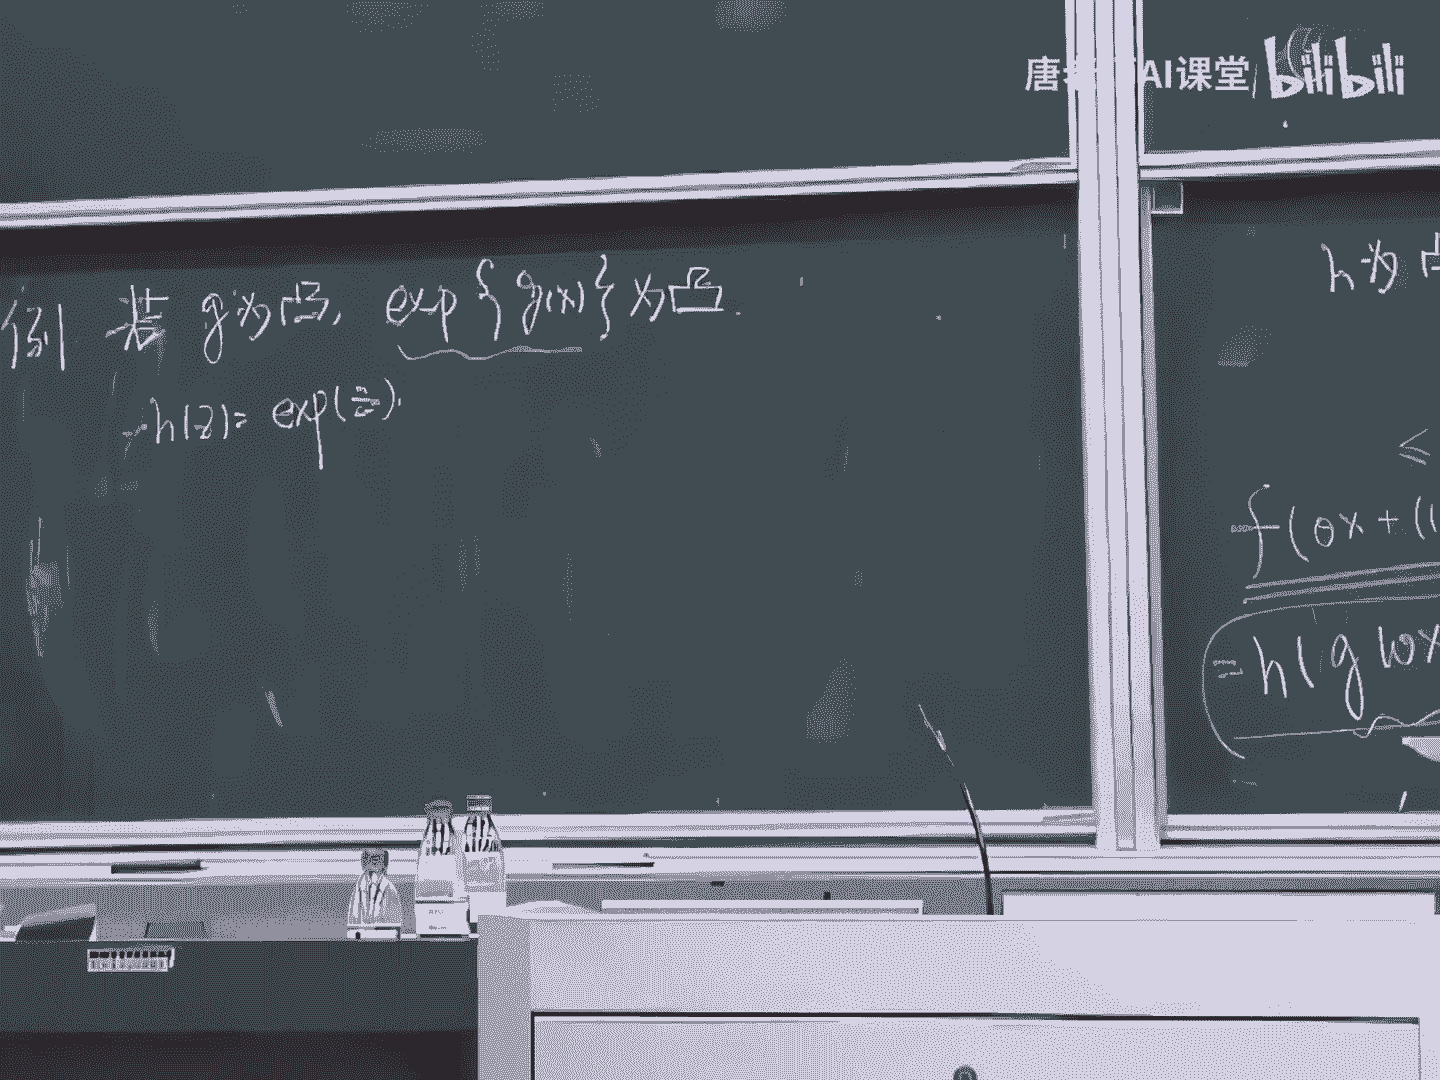 唐 AI课堂 bilibili
例 若 g为凸, exp{g(x)}为凸.
h(z)= exp(z).
h为凸
≤
f(θx+(1
=h(g(θx